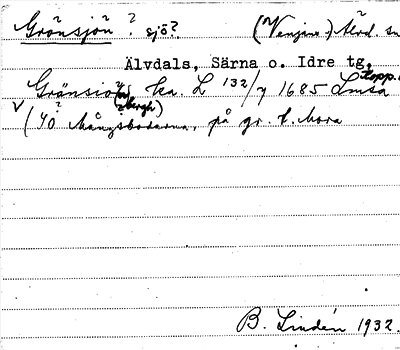 Grönsjön? sjö? (Venjans) Mod. sn
Älvdals, Särna o. Idre tg.
Grönsiö ka. L 132/7 1685 Lmsa
(40 Mångsbodarna, på gr. t. Mora
B. Lindén 1932.